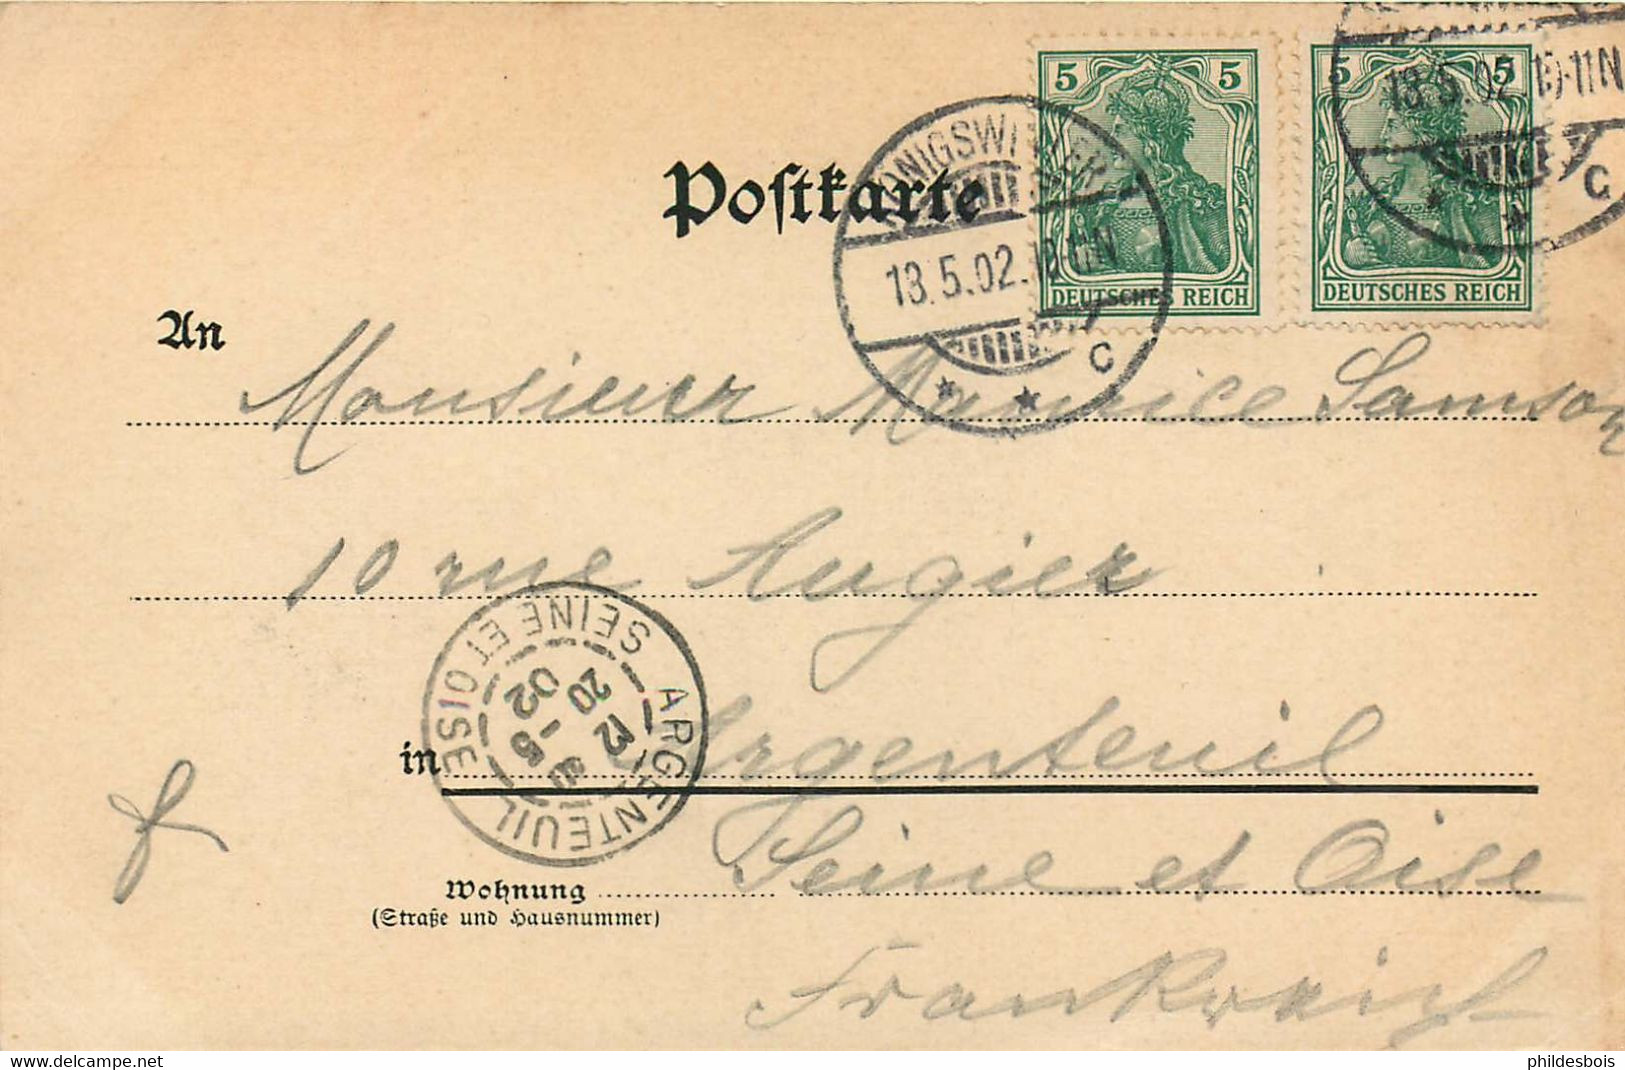 Postkarte
5 5
DEUTSCHES REICH
5 5
DEUTSCHES REICH
KÖNIGSWINTER
13.5.02. 10-11N
* * C
13.5.02. 10-11N
* * C
An
Monsieur Maurice Samson
10 rue Augier
in Argenteuil
ARGENTEUIL
SEINE ET OISE
20
02
Seine et Oise
Wohnung
(Straße und Hausnummer)
Frankreich
www.delcampe.net
phildesbois